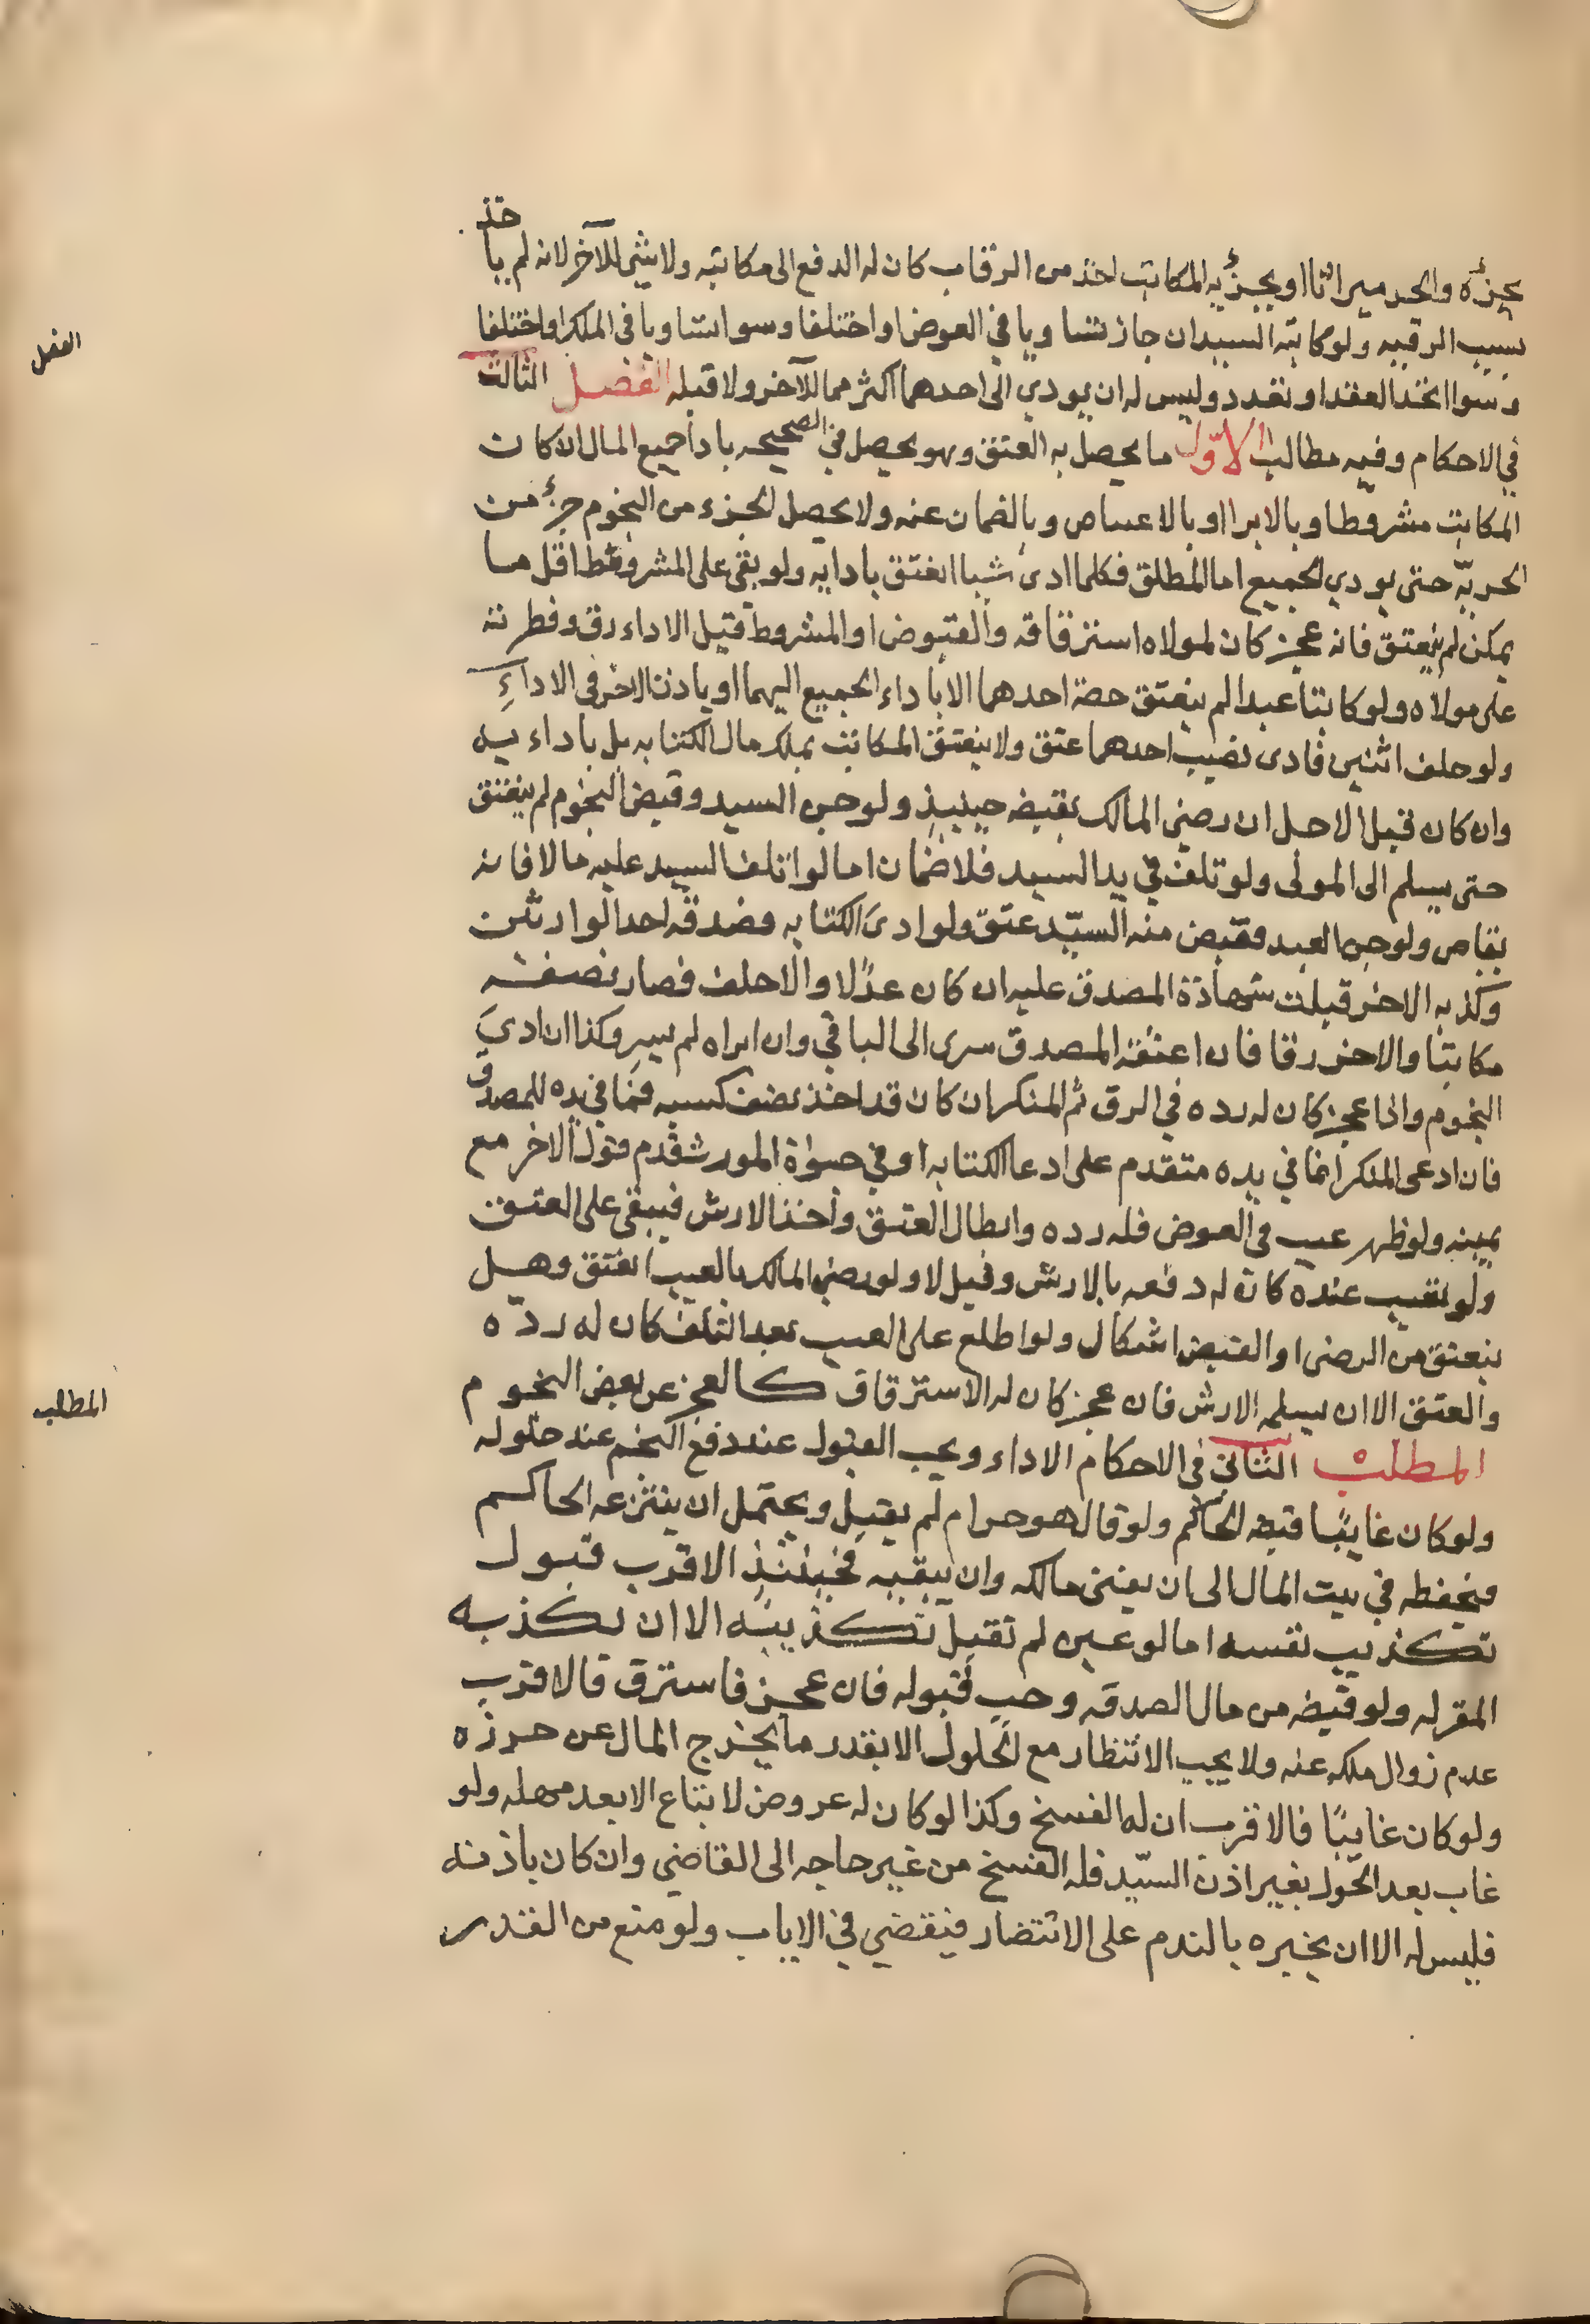 بجزئه والحر ميراثا او بجزئه المكاتب اخذ من الرقاب كان له الدفع الى مكاتبه ولا شى للآخر لانه لم ياخذ
بسبب الرقبه ولو كاتبه السيدان جاز تساويا في العوض او اختلفا وسوا تساويا فى الملك او اختلفا
وسوا اتحد العقد او تعدد وليس له ان يودي الى احدهما اكثر مما للآخر ولا قبله الفصل الثالث
في الاحكام وفيه مطالب الاوّل ما يحصل به العتق وهو يحصل في الصحيحه بادا جميع المال ان كان
المكاتب مشروطا وبالابرا او بالاعساص وبالضمان عنه ولا يحصل لجزء من النجوم جزء من
الحريّه حتى يودي الجميع اما المطلق فكلما ادى شيا انعتق بادايه ولو بقى على المشروط اقل ما
يمكن لم ينعتق فانه عجز كان لمولاه استرقاقه والقبوض او المشروط قبل الاداء رق وفطرته
على مولاه ولو كاتبا عبدا لم ينعتق حصة احدهما الا باداء الجميع اليهما او باذن الاخر فى الاداءِ
ولو خلف اثنين فادى نصيب احدهما عتق ولا ينعتق المكاتب بملك مال الكتابه بل باداء يه
وان كان قبل الاجل ان رضي المالك بقبضه حينيذٍ ولو جن السيد وقبض النجوم لم ينعتق
حتى يسلم الى المولى ولو تلف في يد السيد فلا ضمان اما لو اتلف السيد عليه مالا فانه
يقاص ولو جن العبد فقبض منه السيّد عتق ولو ادى الكتابه فصدقه احد الوارثين
وكذبه الاخر قبلت شهادة المصدق عليه ان كان عدًلا والا حلف فصار نصفه
مكاتبا والاخر رقا فان اعتقه المصدق سرى الى الباقي وان ابراه لم يسرِ وكذا ان ادىَ
النجوم واذا عجز كان له رده في الرق ثم المنكر ان كان قد اخذ نصف كسبه فما في يده للمصدق
فان ادعى المنكر انما في يده متقدم على ادعا الكتابه او في حيواة المورث قدم قول الاخر مع
يمينه ولو ظهر عيب في العوض فله رده وابطال العتق واخذ الارش فيبقى على العتق
ولو تعيب عنده كان له دفعه بالارش وقيل لا ولو رضي المالك بالعيب انعتق وهل
ينعتق من الرضى او القبض اشكال ولو اطلع على العيب بعد التلف كان له ردّه
والعتق الا ان يسلمه الارش فان عجز كان له الاسترقاق كالعجز عن بعض النجوم
المطلب الثاني في الاحكام الاداء ويجب القبول عند دفع النجم عند حلوله
ولو كان غايبًا قبضه الحاكم ولو قال هو حرام لم يقبل ويحتمل ان ينتزعه الحاكم
فيحفظه في بيت المال الى ان يعنى مالكه وان يبقيه فحينئذٍ الاقرب قبول
تكذيب نفسه اما لو عين لم تقبل تكذيبه الا ان يكذبه
المقر له ولو قبضه من مال الصدقه وجب قبوله فان عجز فاسترق فالاقرب
عدم زوال ملكه عنه ولا يجب الانتظار مع الحلول الا بقدر ما يخرج المال عن حرزه
ولو كان غايبًا فالاقرب ان له الفسخ وكذا لو كان له عروض لا تباع الا بعد مهله ولو
غاب بعد الحول بغير اذن السيّد فله الفسخ من غير حاجه الى القاضي وان كان باذنه
فليس له الا ان يخبره بالندم على الانتضار فيقضي في الاياب ولو منع من القدر
الفصل
المطالب